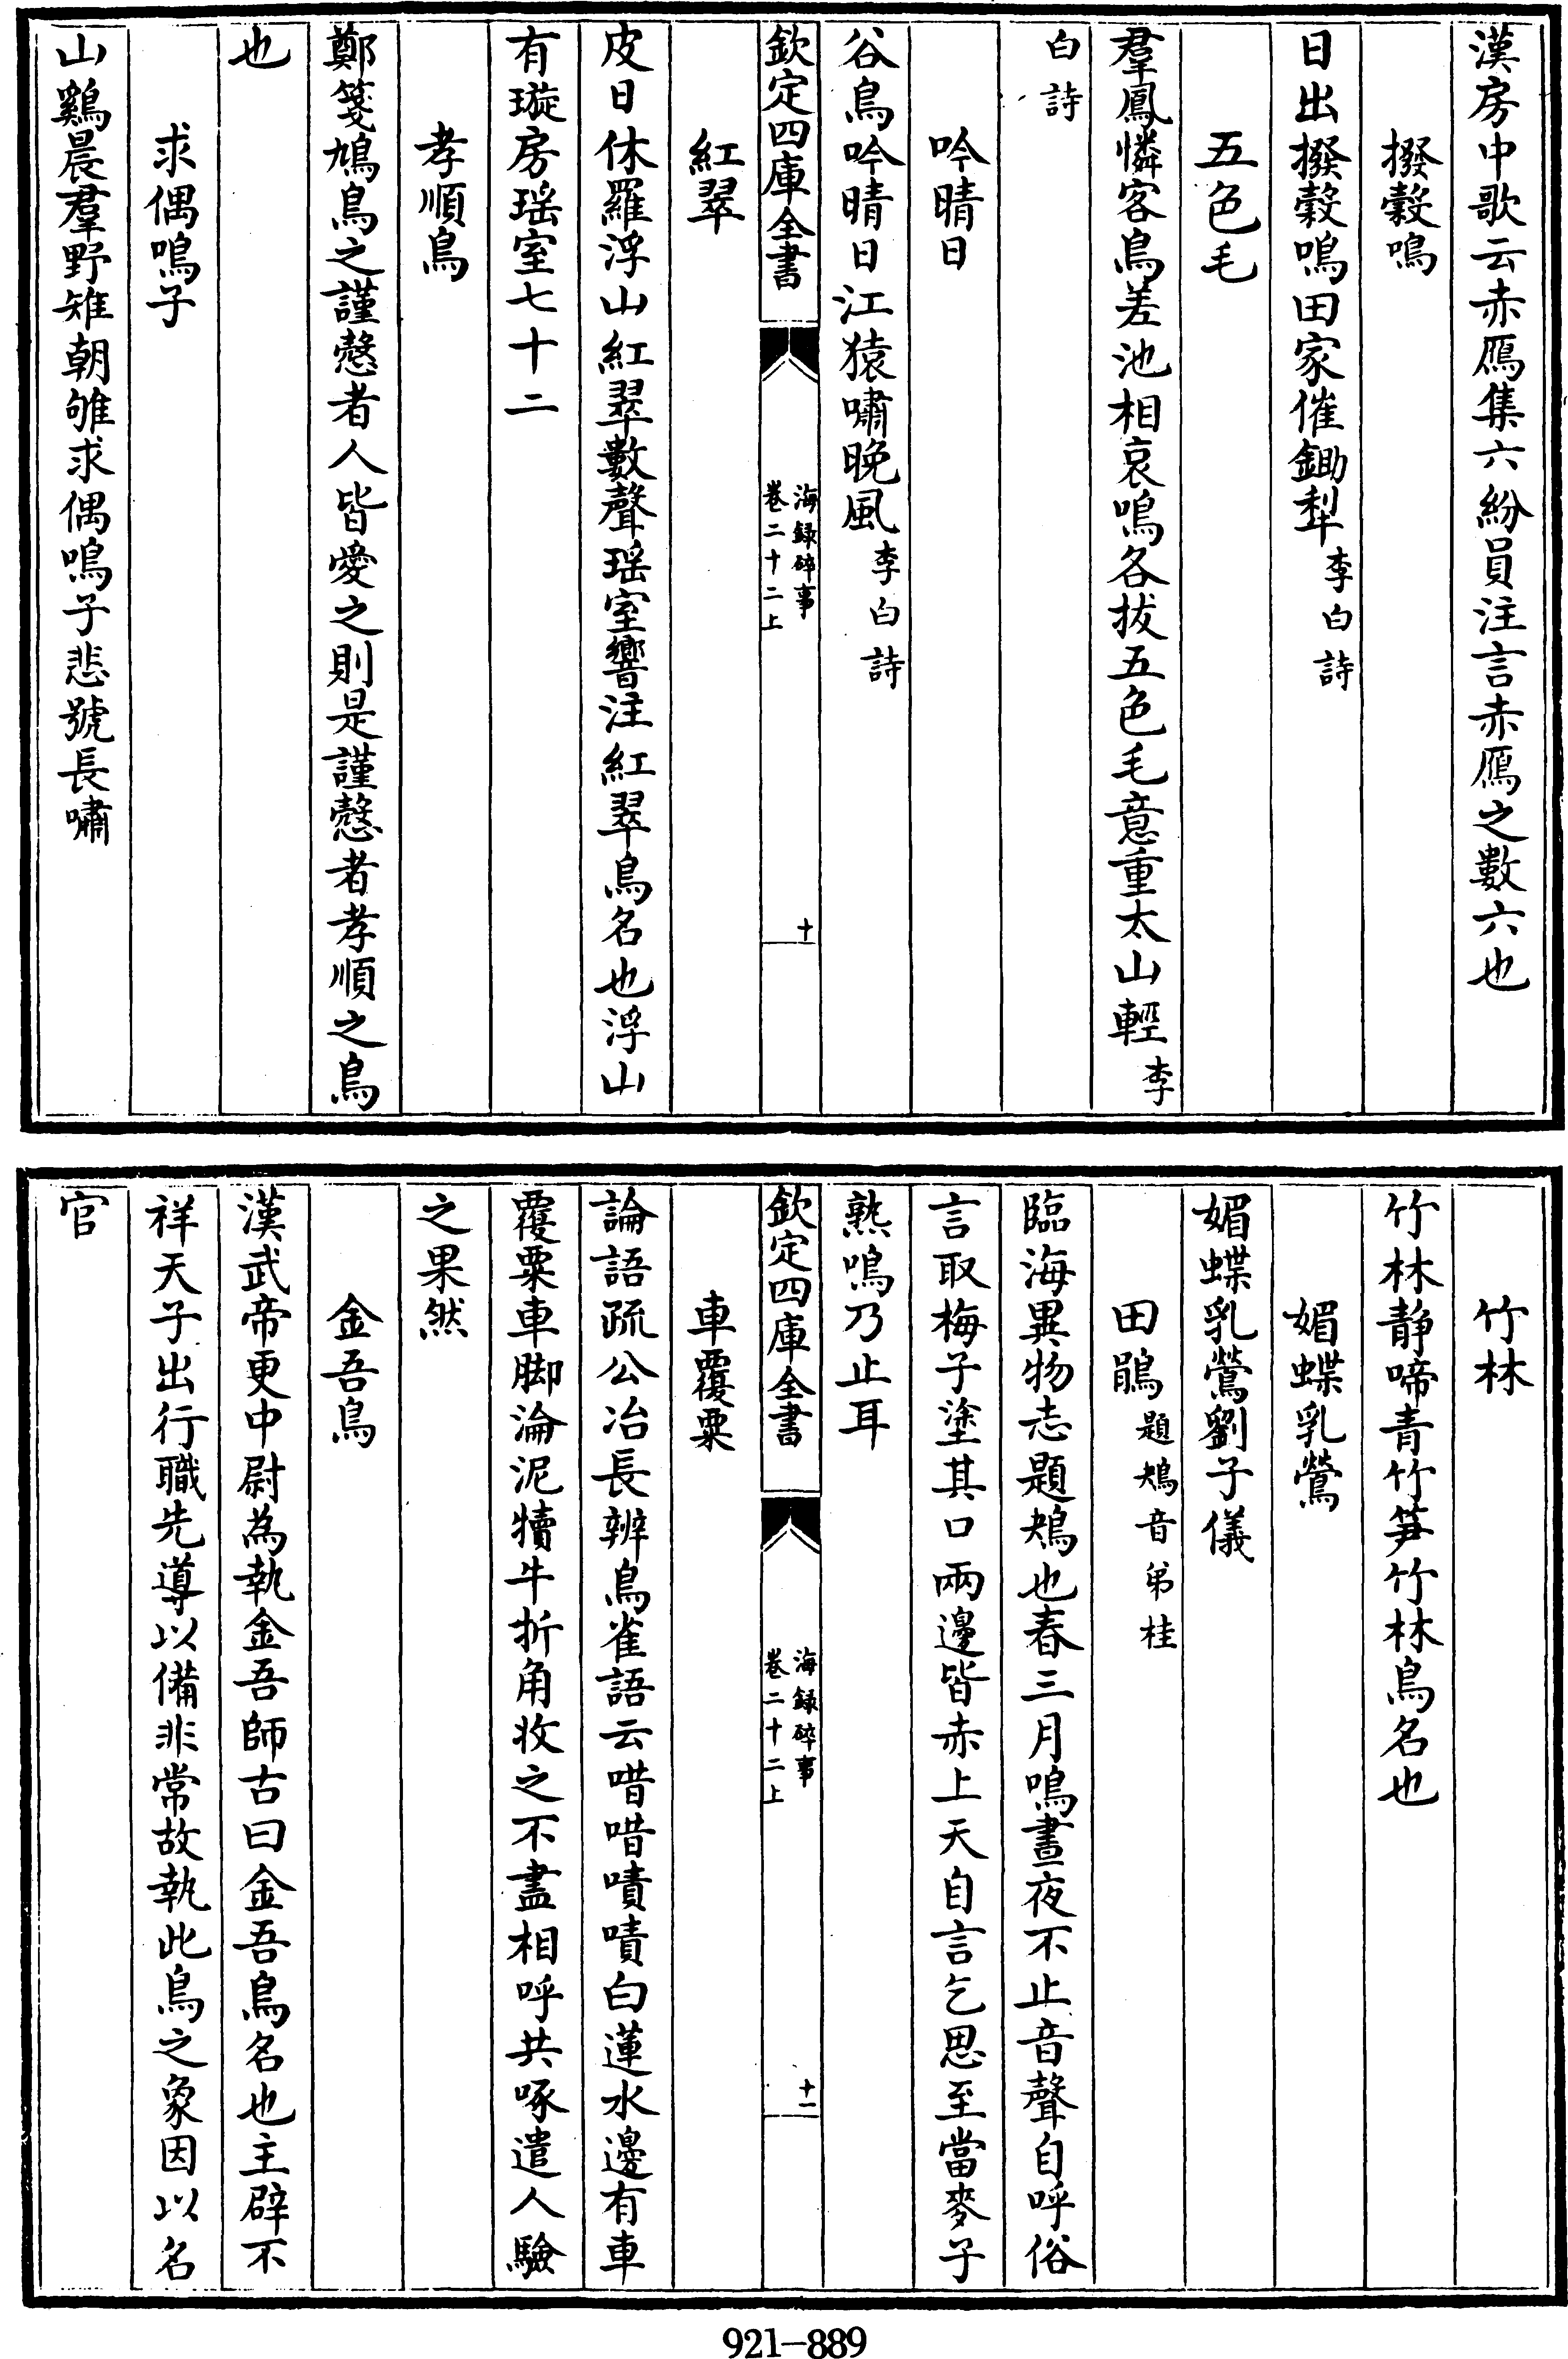 漢房中歌云赤鴈集六紛員注言赤鴈之數六也
撥穀鳴
日出撥穀鳴田家催鋤犁李白詩
五色毛
羣鳳憐客鳥差池相哀鳴各拔五色毛意重太山輕李
白詩
吟晴日
谷鳥吟晴日江猿嘯晚風李白詩
欽定四庫全書
海録碎事
卷二十二上
十
紅翠
皮日休羅浮山紅翠數聲瑶室響注紅翠鳥名也浮山
有璇房瑶室七十二
孝順鳥
鄭箋鳩鳥之謹慤者人皆愛之則是謹慤者孝順之鳥
也
求偶鳴子
山鷄晨羣野雉朝雊求偶鳴子悲號長嘯
竹林
竹林静啼青竹笋竹林鳥名也
媚蝶乳鶯
媚蝶乳鶯劉子儀
田鵑題鴂音弟桂
臨海異物志題鴂也春三月鳴晝夜不止音聲自呼俗
言取梅子塗其口兩邊皆赤上天自言乞思至當麥子
熟鳴乃止耳
欽定四庫全書
海録碎事
卷二十二上
十一
車覆粟
論語疏公冶長辨鳥雀語云唶唶嘖嘖白蓮水邊有車
覆粟車脚淪泥犢牛折角收之不盡相呼共啄遣人驗
之果然
金吾鳥
漢武帝更中尉為執金吾師古曰金吾鳥名也主辟不
祥天子出行職先導以備非常故執此鳥之象因以名
官
921-889